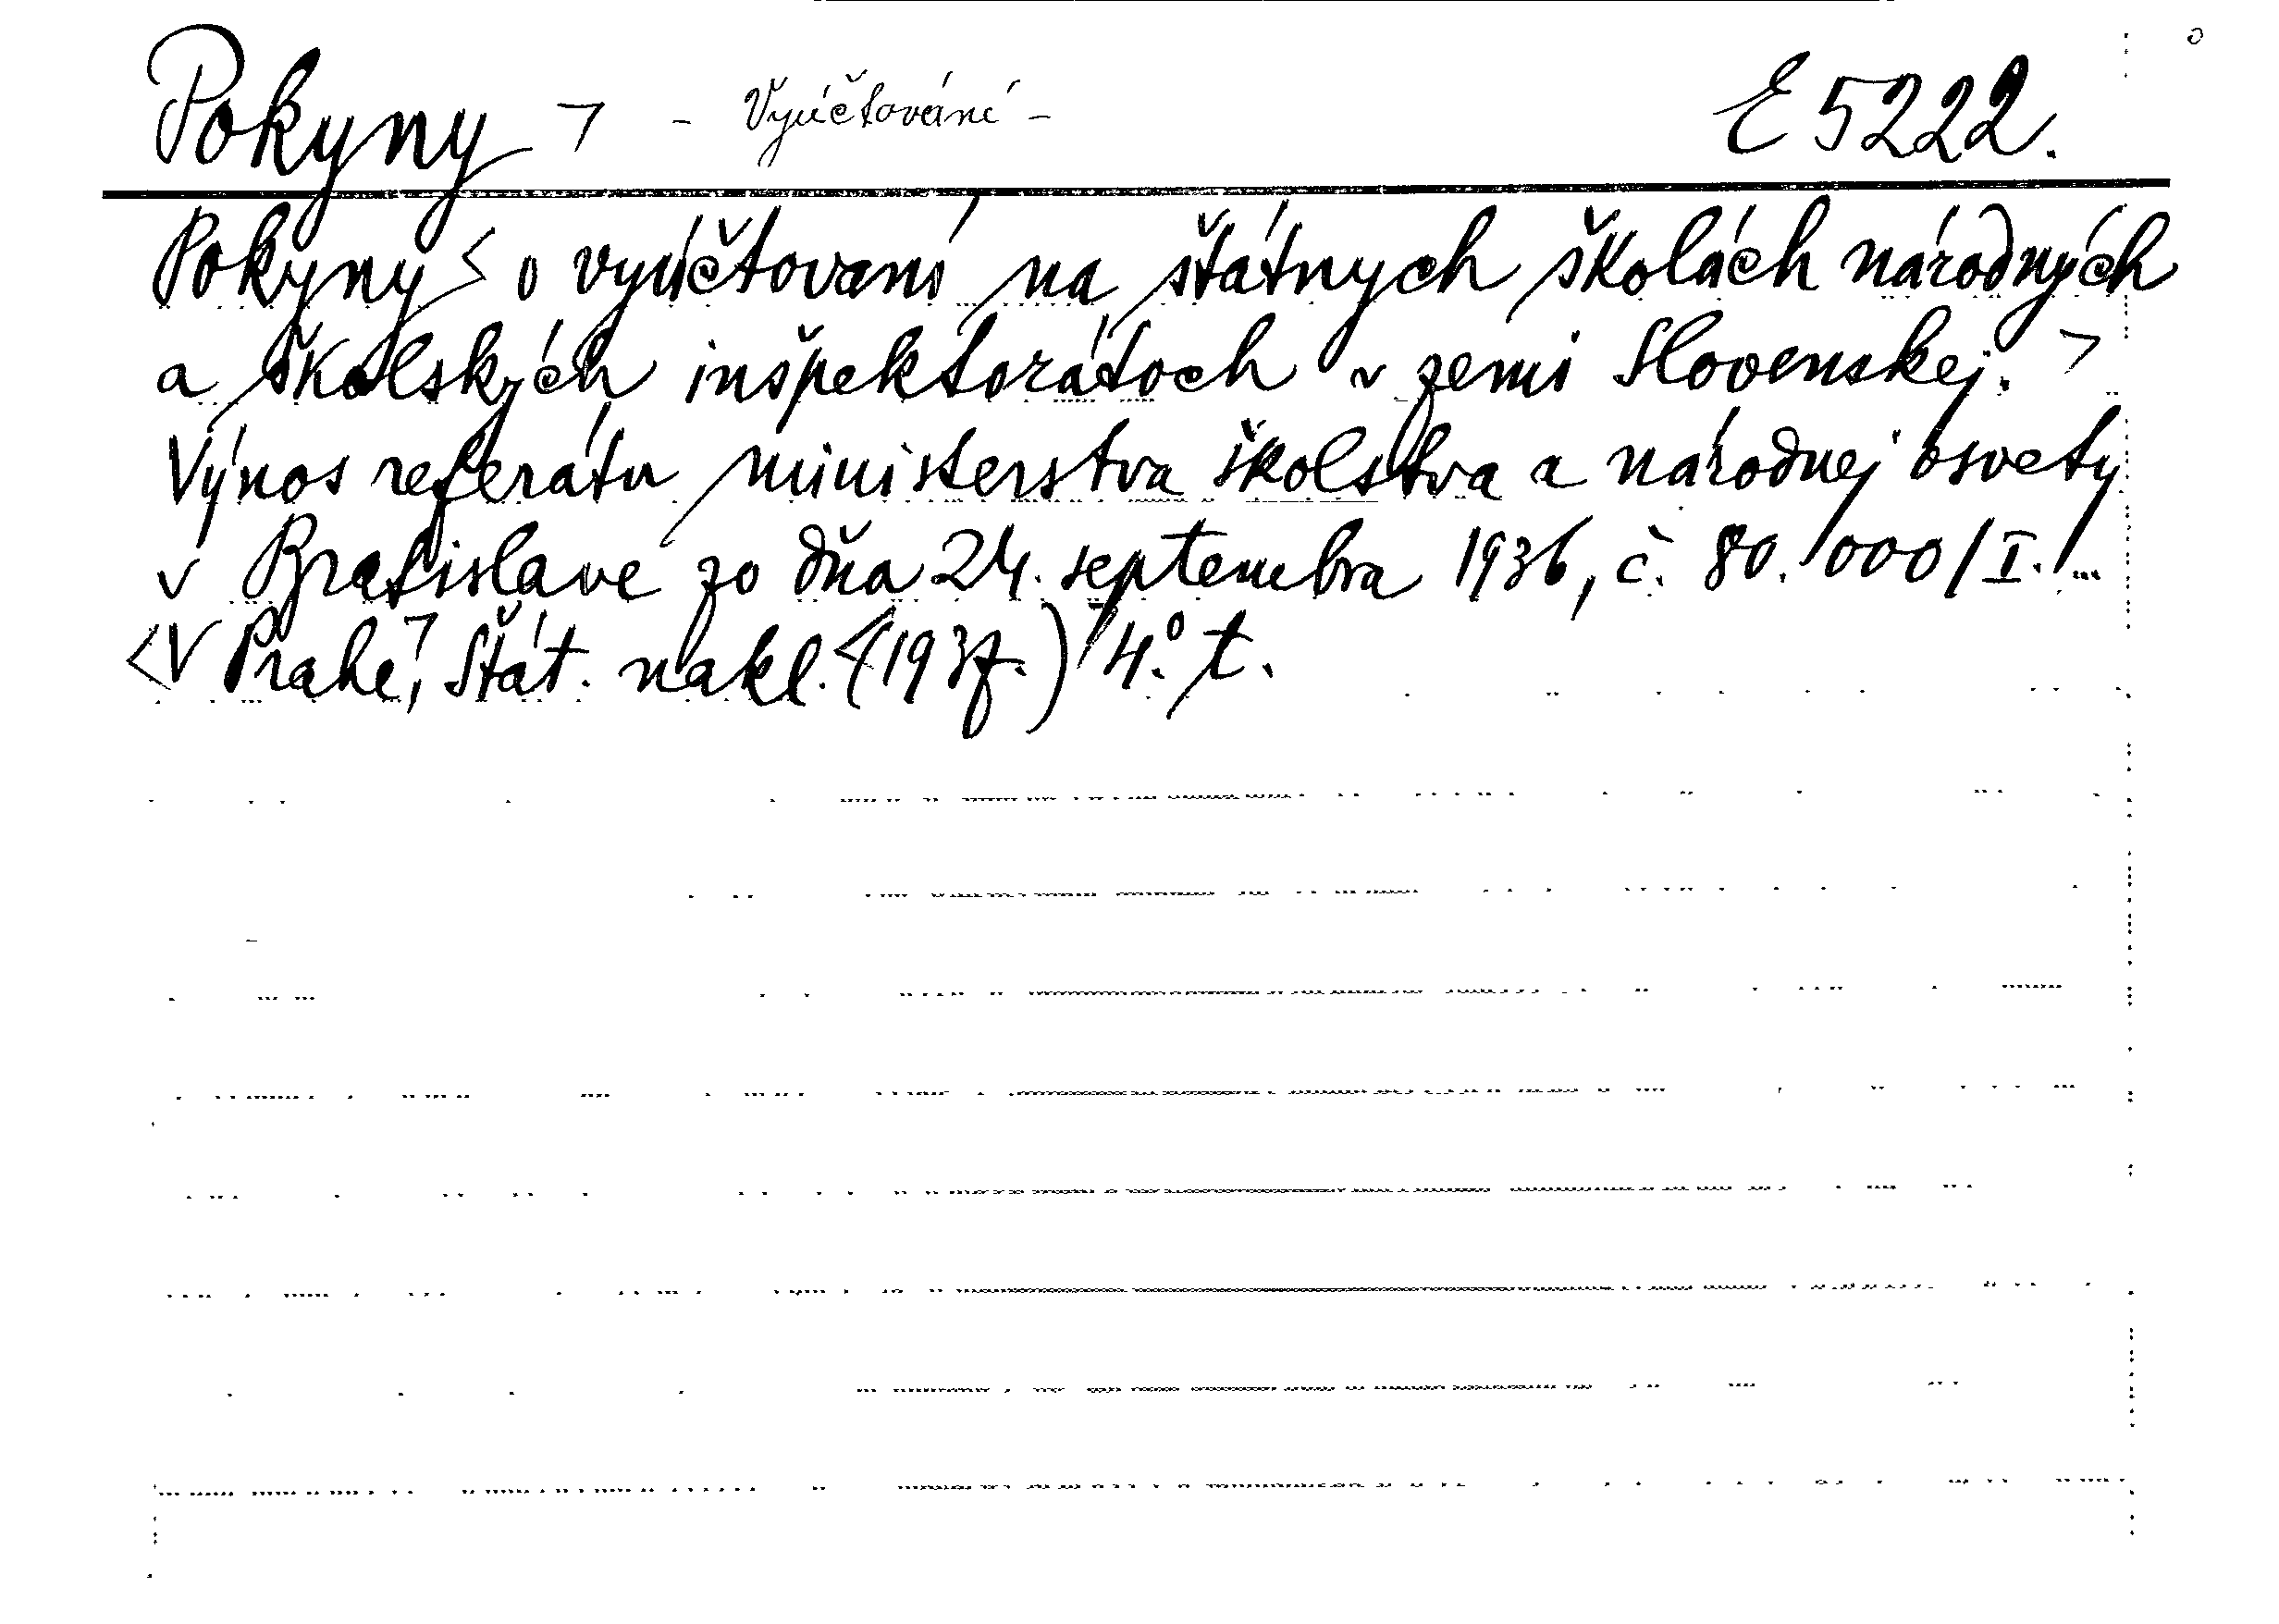 Pokyny > - Vyúčtování - E 5222.
Pokyny < o vyúčtovaní na štátnych školách národných
a školských inšpektorátoch v zemi Slovenskej. >
Výnos referátu ministerstva školstva a národnej osvety
v Bratislave zo dňa 24. septembra 1936, č. 80.000/I. ...
<V Prahe,> Štát. nakl. <(1937.)> 4.° t.